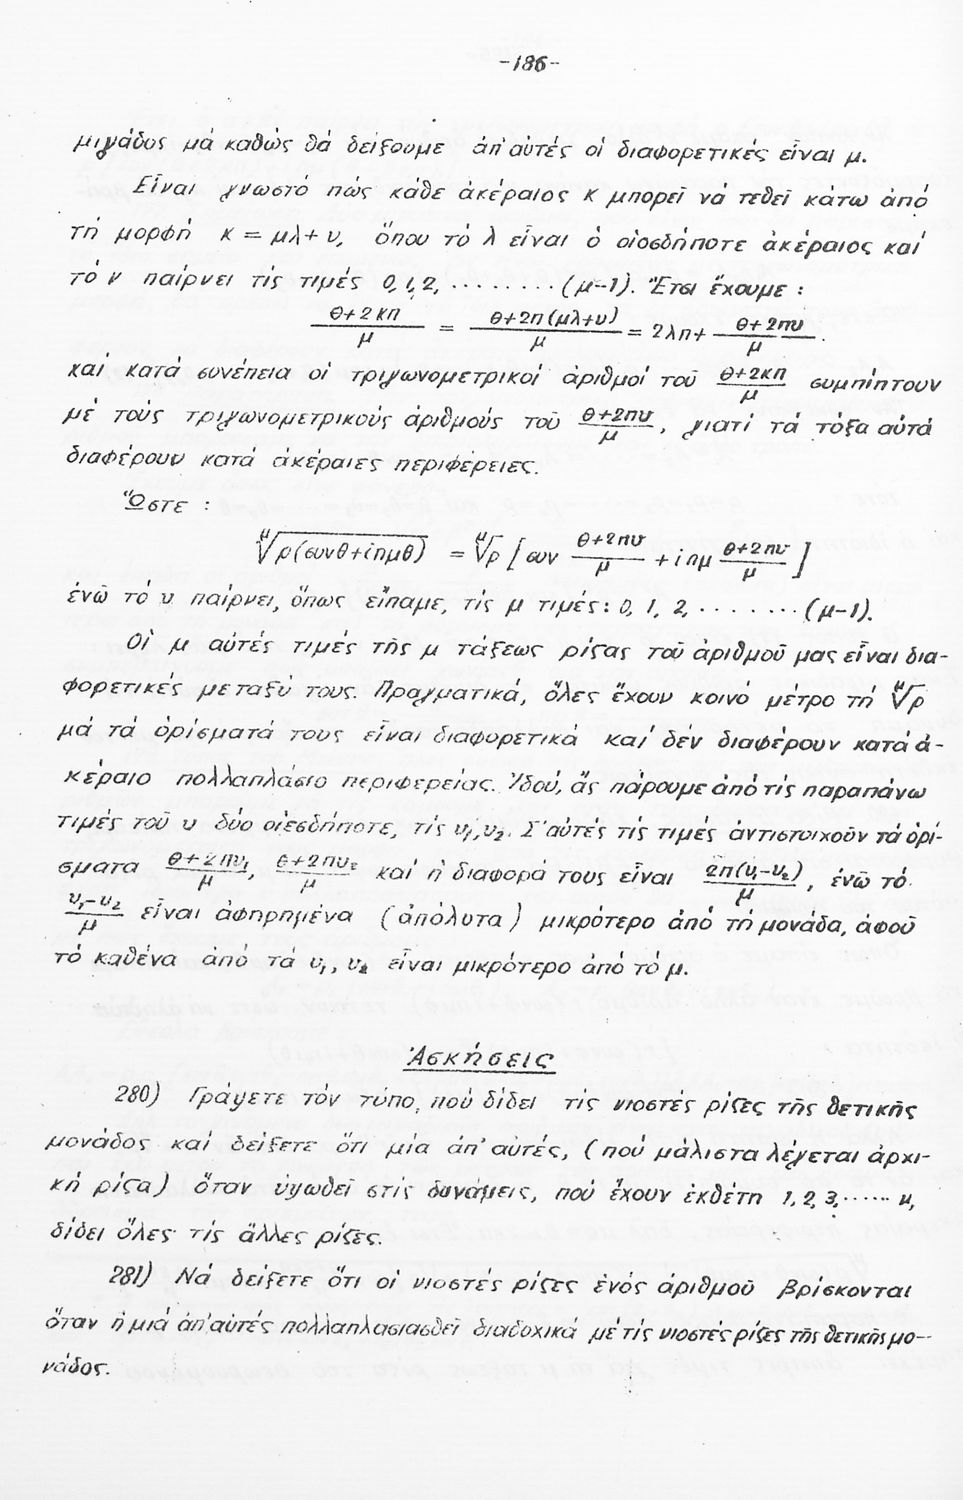 -186-
μιγάδος μά καθώς θά δείξουμε ἀπ'αὐτές οἱ διαφορετικές εἶναι μ.
Εἶναι γνωστό πώς κάθε ἀκέραιος κ μπορεῖ νά τεθεῖ κάτω ἀπό
τή μορφή κ = μλ + υ, ὅπου τό λ εἶναι ὁ οἱοσδήποτε ἀκέραιος καί
τό ν παίρνει τίς τιμές 0, 1, 2, ......... (μ-1). Ἔτσι ἔχουμε :
(θ+2κπ)/μ = (θ+2π(μλ+υ))/μ = 2λπ + (θ+2πυ)/μ .
καί κατά συνέπεια οἱ τριγωνομετρικοί ἀριθμοί τοῦ (θ+2κπ)/μ συμπίπτουν
μέ τούς τριγωνομετρικούς ἀριθμούς τοῦ (θ+2πυ)/μ , γιατί τά τόξα αὐτά
διαφέρουν κατά ἀκέραιες περιφέρειες.
Ὥστε :
μ√ρ(συνθ+iημθ) = μ√ρ [συν (θ+2πυ)/μ + iημ (θ+2πυ)/μ]
ἐνῶ τό υ παίρνει, ὅπως εἴπαμε, τίς μ τιμές: 0, 1, 2, ....... (μ-1).
Οἱ μ αὐτές τιμές τῆς μ τάξεως ρίζας τοῦ ἀριθμοῦ μας εἶναι δια-
φορετικές μεταξύ τους. Πραγματικά, ὅλες ἔχουν κοινό μέτρο τή μ√ρ
μά τά ὁρίσματά τους εἶναι διαφορετικά καί δέν διαφέρουν κατά ἀ-
κέραιο πολλαπλάσιο περιφερείας. Ἰδού, ἄς πάρουμε ἀπό τίς παραπάνω
τιμές τοῦ υ δύο οἱεσδήποτε, τίς υ₁,υ₂. Σ'αὐτές τίς τιμές ἀντιστοιχοῦν τά ὁρί-
σματα (θ+2πυ₁)/μ, (θ+2πυ₂)/μ καί ἡ διαφορά τους εἶναι 2π(υ₁-υ₂)/μ , ἐνῶ τό
(υ₁-υ₂)/μ εἶναι ἀφηρημένα (ἀπόλυτα) μικρότερο ἀπό τή μονάδα, ἀφοῦ
τό καθένα ἀπό τα υ₁, υ₂ εἶναι μικρότερο ἀπό τό μ.
Ἀσκήσεις
280) Γράψετε τόν τύπο, πού δίδει τίς νιοστές ρίζες τῆς θετικῆς
μονάδος καί δείξετε ὅτι μία ἀπ' αὐτές, (πού μάλιστα λέγεται ἀρχι-
κή ρίζα) ὅταν ὑψωθεῖ στίς δυνάμεις, πού ἔχουν ἐκθέτη 1, 2, 3, ...... ν,
δίδει ὅλες τίς ἄλλες ρίζες.
281) Νά δείξετε ὅτι οἱ νιοστές ρίζες ἑνός ἀριθμοῦ βρίσκονται
ὅταν ἡ μιά ἀπ'αὐτές πολλαπλασιασθεῖ διαδοχικά μέ τίς νιοστές ρίζες τῆς θετικῆς μο-
νάδος.